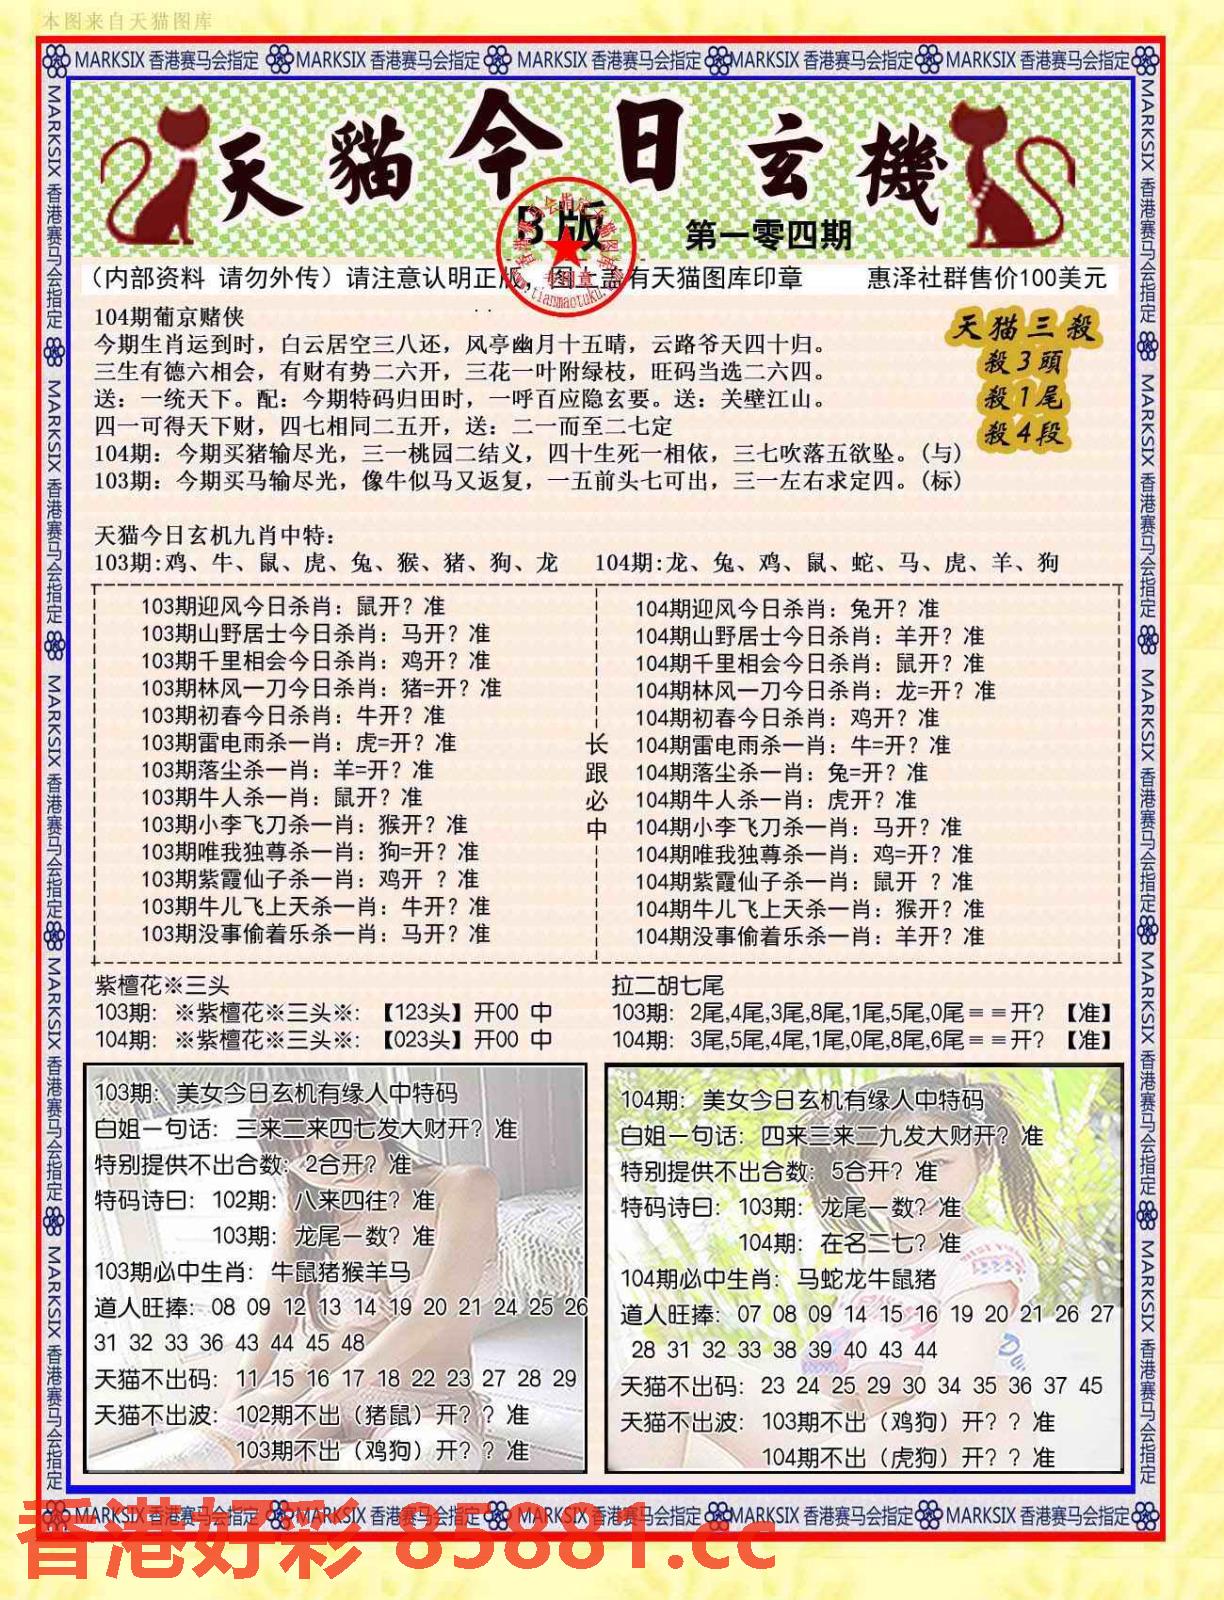 本图来自天猫图库
MARKSIX 香港赛马会指定 MARKSIX 香港赛马会指定 MARKSIX 香港赛马会指定 MARKSIX 香港赛马会指定 MARKSIX 香港赛马会指定
天貓今日玄機
B版
第一零四期
(内部资料 请勿外传)请注意认明正版,图上盖有天猫图库印章 惠泽社群售价100美元
104期葡京赌侠
今期生肖运到时,白云居空三八还,风亭幽月十五晴,云路爷天四十归。
三生有德六相会,有财有势二六开,三花一叶附绿枝,旺码当选二六四。
送:一统天下。配:今期特码归田时,一呼百应隐玄要。送:关壁江山。
四一可得天下财,四七相同二五开,送:二一而至二七定
104期:今期买猪输尽光,三一桃园二结义,四十生死一相依,三七吹落五欲坠。(与)
103期:今期买马输尽光,像牛似马又返复,一五前头七可出,三一左右求定四。(标)
天猫三殺
殺3頭
殺1尾
殺4段
天猫今日玄机九肖中特:
103期:鸡、牛、鼠、虎、兔、猴、猪、狗、龙
104期:龙、兔、鸡、鼠、蛇、马、虎、羊、狗
103期迎风今日杀肖:鼠开?准
103期山野居士今日杀肖:马开?准
103期千里相会今日杀肖:鸡开?准
103期林风一刀今日杀肖:猪=开?准
103期初春今日杀肖:牛开?准
103期雷电雨杀一肖:虎=开?准
103期落尘杀一肖:羊=开?准
103期牛人杀一肖:鼠开?准
103期小李飞刀杀一肖:猴开?准
103期唯我独尊杀一肖:狗=开?准
103期紫霞仙子杀一肖:鸡开 ?准
103期牛儿飞上天杀一肖:牛开?准
103期没事偷着乐杀一肖:马开?准
长跟必中
104期迎风今日杀肖:兔开?准
104期山野居士今日杀肖:羊开?准
104期千里相会今日杀肖:鼠开?准
104期林风一刀今日杀肖:龙=开?准
104期初春今日杀肖:鸡开?准
104期雷电雨杀一肖:牛=开?准
104期落尘杀一肖:兔=开?准
104期牛人杀一肖:虎开?准
104期小李飞刀杀一肖:马开?准
104期唯我独尊杀一肖:鸡=开?准
104期紫霞仙子杀一肖:鼠开 ?准
104期牛儿飞上天杀一肖:猴开?准
104期没事偷着乐杀一肖:羊开?准
紫檀花※三头
103期: ※紫檀花※三头※: 【123头】开00 中
104期: ※紫檀花※三头※: 【023头】开00 中
拉二胡七尾
103期: 2尾,4尾,3尾,8尾,1尾,5尾,0尾＝＝开? 【准】
104期: 3尾,5尾,4尾,1尾,0尾,8尾,6尾＝＝开? 【准】
103期:美女今日玄机有缘人中特码
白姐一句话:三来二来四七发大财开?准
特别提供不出合数:2合开?准
特码诗曰:102期:八来四往?准
103期:龙尾一数?准
103期必中生肖:牛鼠猪猴羊马
道人旺捧:08 09 12 13 14 19 20 21 24 25 26
31 32 33 36 43 44 45 48
天猫不出码:11 15 16 17 18 22 23 27 28 29
天猫不出波:102期不出(猪鼠)开??准
103期不出(鸡狗)开??准
104期:美女今日玄机有缘人中特码
白姐一句话:四来三来二九发大财开?准
特别提供不出合数:5合开?准
特码诗曰:103期:龙尾一数?准
104期:在名二七?准
104期必中生肖:马蛇龙牛鼠猪
道人旺捧:07 08 09 14 15 16 19 20 21 26 27
28 31 32 33 38 39 40 43 44
天猫不出码:23 24 25 29 30 34 35 36 37 45
天猫不出波:103期不出(鸡狗)开??准
104期不出(虎狗)开??准
MARKSIX 香港赛马会指定 MARKSIX 香港赛马会指定 MARKSIX 香港赛马会指定 MARKSIX 香港赛马会指定 MARKSIX 香港赛马会指定
MARKSIX 香港赛马会指定 MARKSIX 香港赛马会指定 MARKSIX 香港赛马会指定 MARKSIX 香港赛马会指定 MARKSIX 香港赛马会指定
MARKSIX 香港赛马会指定 MARKSIX 香港赛马会指定 MARKSIX 香港赛马会指定 MARKSIX 香港赛马会指定 MARKSIX 香港赛马会指定
香港好彩 85881.cc